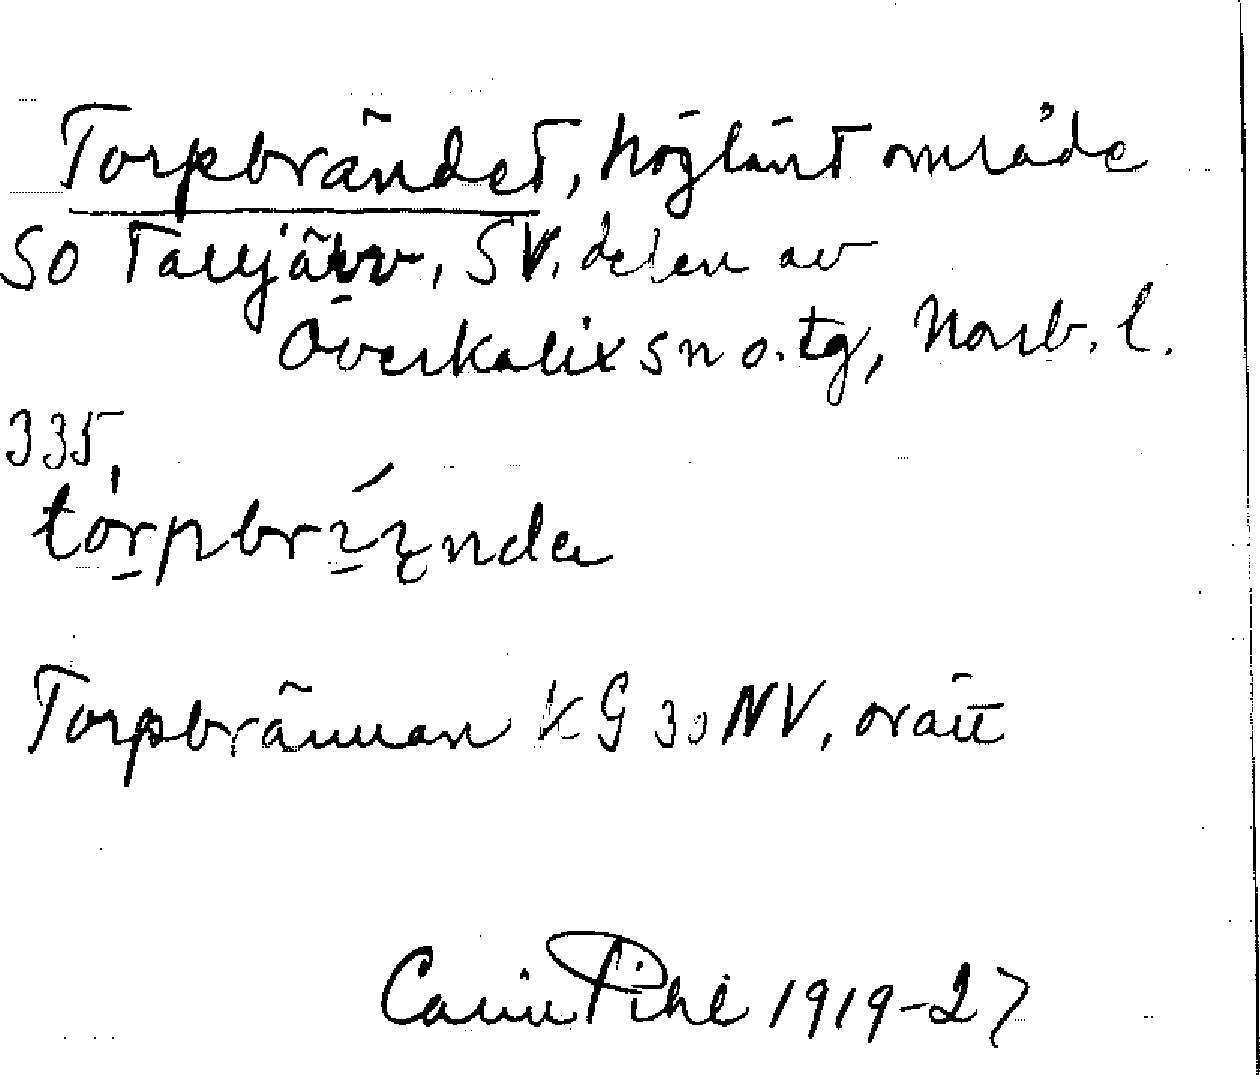 Torpbrändet, höglänt område
SO Talljärv, SV. delen av
Överkalix sn o. tg, Norrb. l.
335.
Torpbrännan KG 30 NV, orätt
Carin Pihl 1919-27